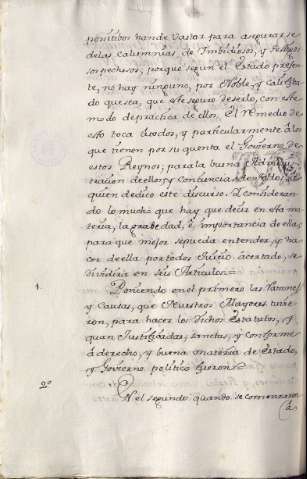 positivos han de vastar para asegurarse
de las calumnias, de Imbidiosos, y
sospechosos, porque segun el Estado presen
te, no hay ninguno, por Noble, y Califica
do que sea, que este seguro de serlo, con este
modo de practica de ellos. El remedio de
esto toca à todos, y particularmente à los
que tienen por su quenta el Govierno de
estos Reynos; para la buena Adminis
tracion de ellos, y Conciencia
quien dedico este discurso. I consideran
do lo mucho que hay que decir en esta ma
teria, la grabedad, è importancia de ella;
para que mejor se pueda entender, y ha
cer de ella por todos Juicio acertado, se
dividira en seis Articulos.
1. Poniendo en el primero las Razones,
y Causas, que Nuestros Mayores tuvie
ron, para hacer los dichos Estatutos, y
quan Justificadas, sanctas, y conformes
à derecho, y buena materia de Estado,
y Govierno politico fueron.
2º En el segundo quando se comenzaron
(à